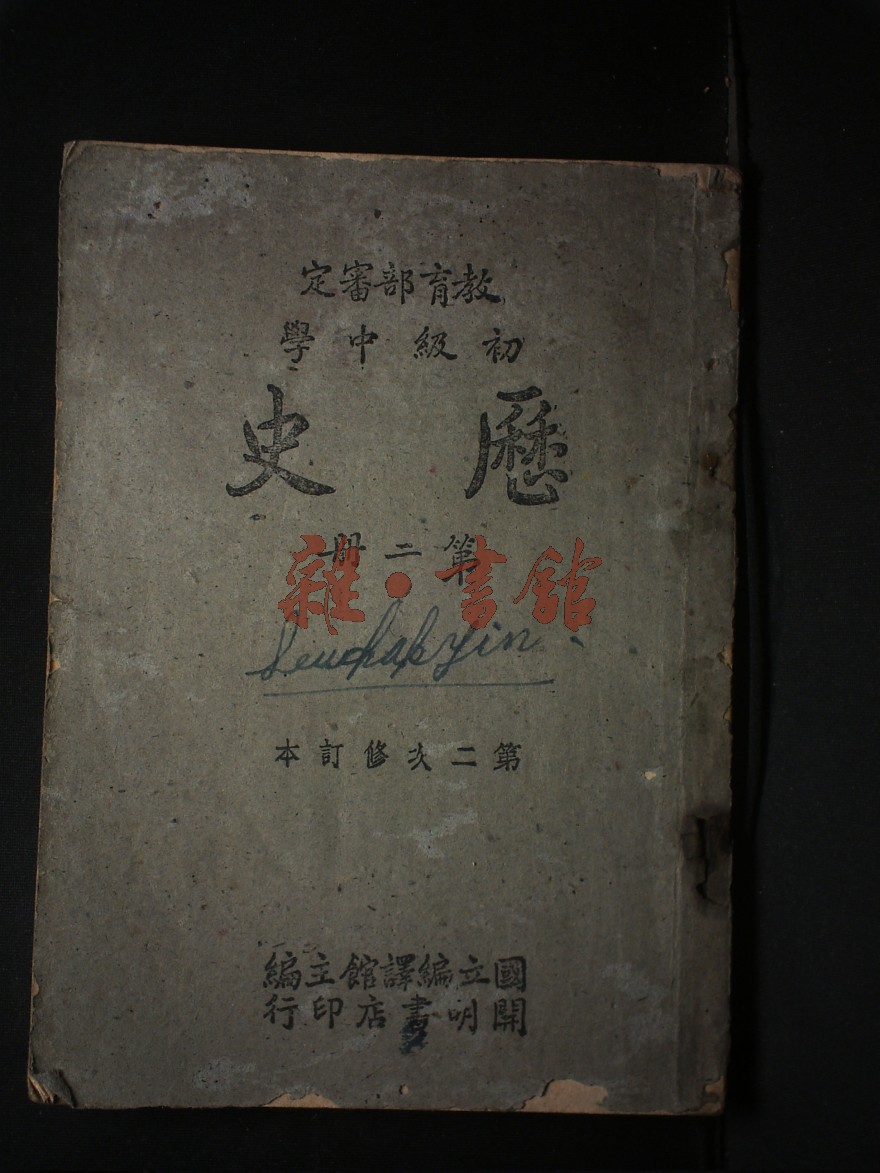 教育部審定
初級中學
歷史
第二冊
雜·書館
第二次修訂本
國立編譯館主編
開明書店印行